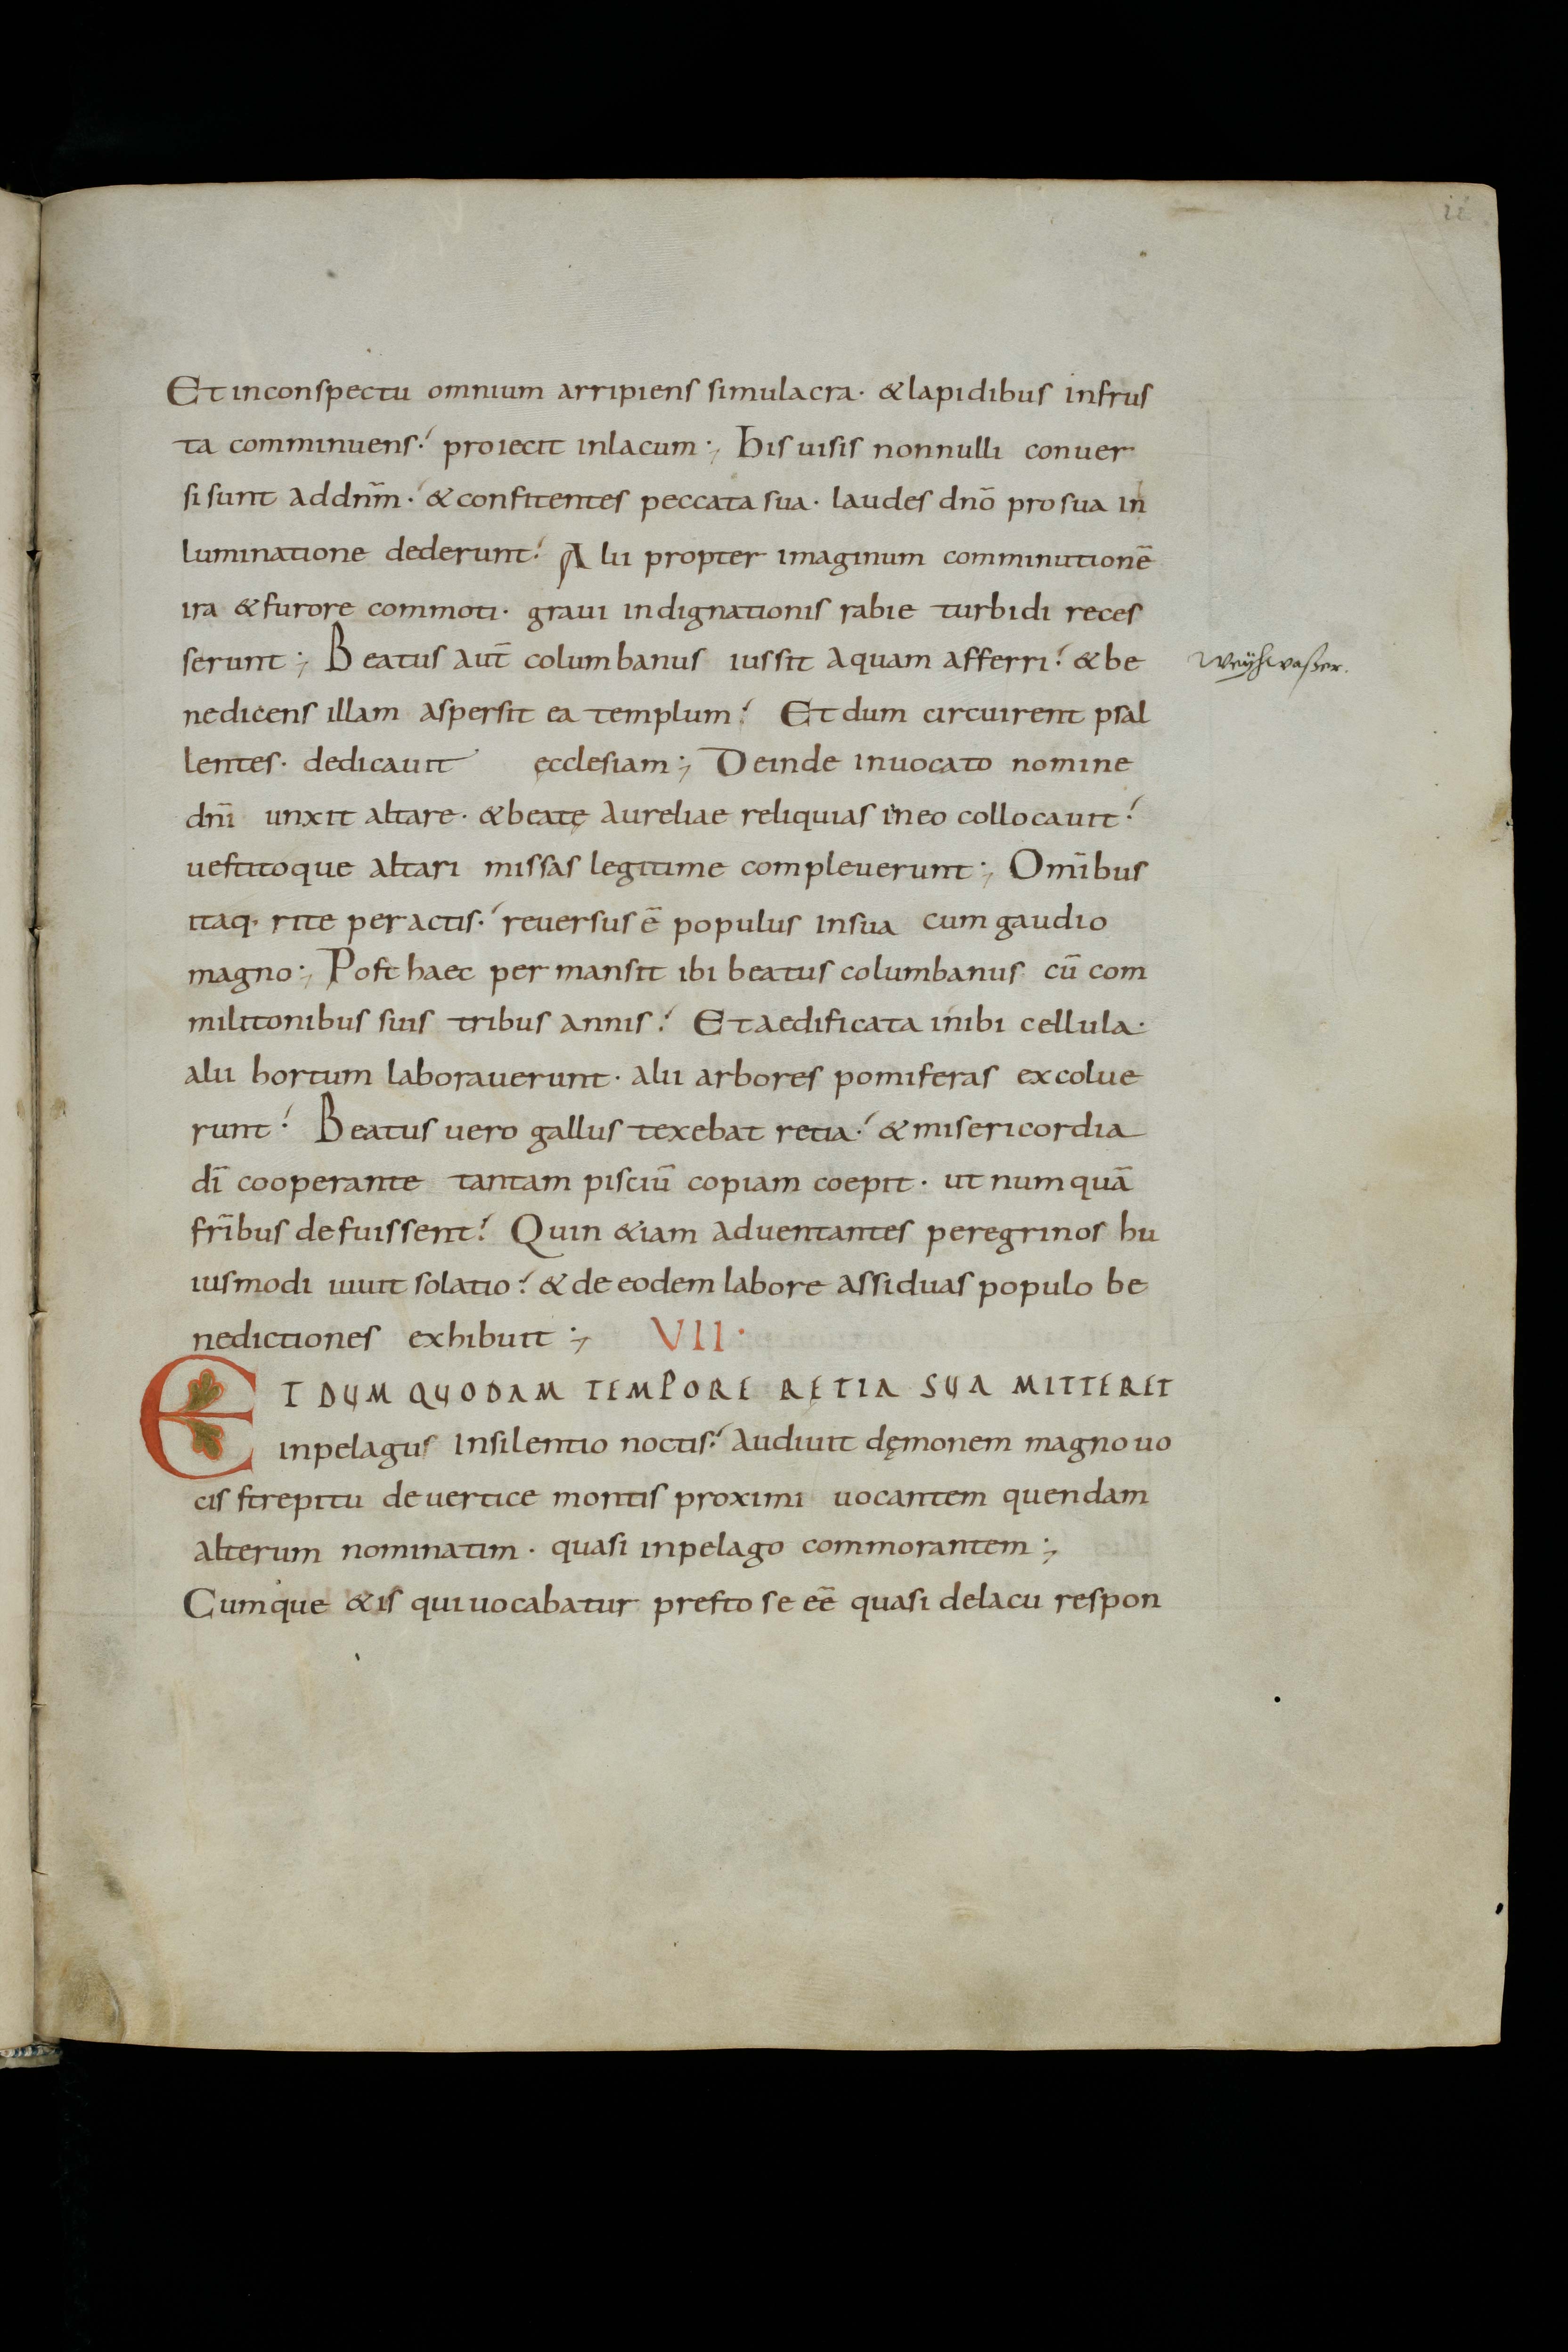 ii
Et inconspectu omnium arripiens simulacra· &lapidibus infrus
ta comminuens·́ proiecit inlacum·, His uisis nonnulli conuer
si sunt addn̄m·́ &confitentes peccata sua· laudes dn̄o pro sua in
luminatione dederunt·́ Alii propter imaginum comminutionē
ira &furore commoti· graui indignationis rabie turbidi reces
serunt·, Beatus aut̄ columbanus iussit aquam afferri·́ &be
Weÿhwaßer.
nedicens illam aspersit ea templum·́ Et dum circuirent psal
lentes· dedicauit ęcclesiam·, Deinde inuocato nomine
dn̄i unxit altare· &beatę Aureliae reliquias ineo collocauit·́
uestitoque altari missas legitime compleuerunt·, Om̄ibus
itaq· rite peractis·́ reuersus ē populus insua cum gaudio
magno·, Post haec permansit ibi beatus columbanus cū com
militonibus suis tribus annis·́ Et aedificata inibi cellula·
alii hortum laborauerunt· alii arbores pomiferas excolue
runt·́ Beatus uero gallus texebat retia·́ &misericordia
dī cooperante tantam pisciū copiam coepit· ut numquā
fr̄ibus defuissent·́ Quin &iam aduentantes peregrinos hu
iusmodi iuuit solatio·́ &de eodem labore assiduas populo be
nedictiones exhibuit·, VII·
ET DUM QUODAM TEMPORE RETIA SUA MITTERET
inpelagus insilentio noctis·́ audiuit dęmonem magno uo
cis strepitu deuertice montis proximi uocantem quendam
alterum nominatim· quasi inpelago commorantem·,
Cumque &is qui uocabatur presto se eē quasi delacu respon